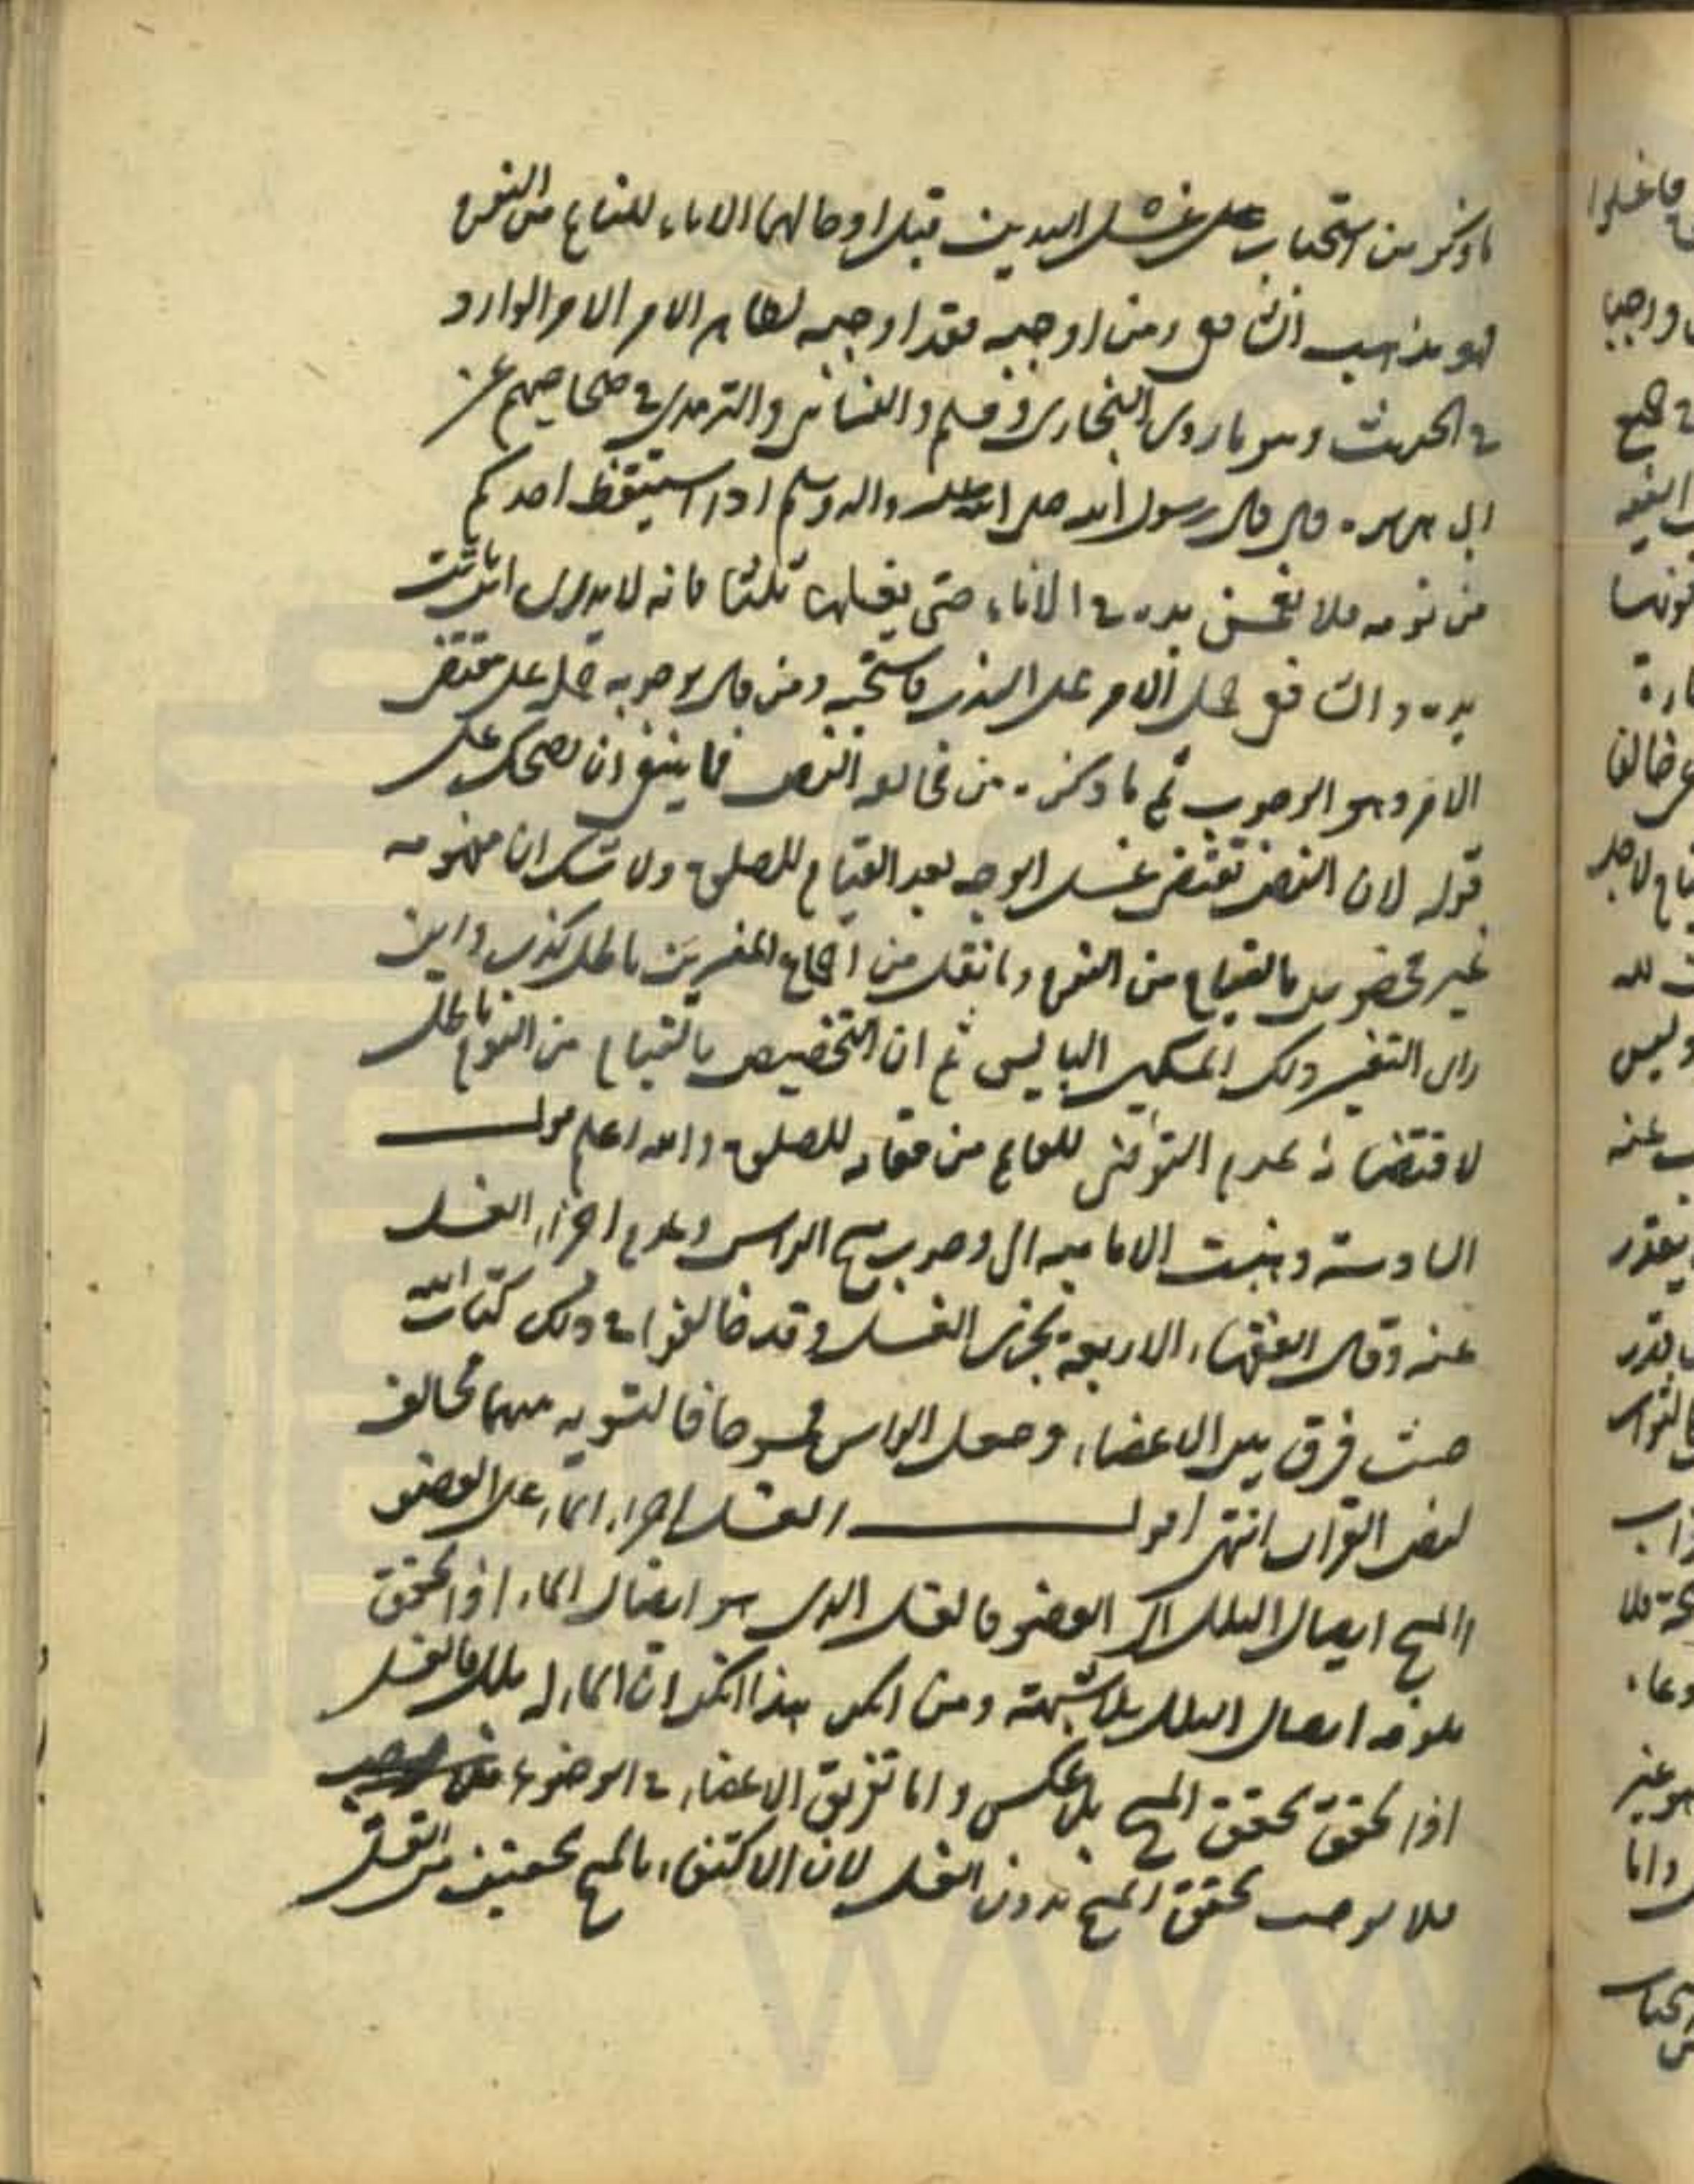 ما ذكر من استحباب غسل اليدين قبل ادخالهما الاناء للقيام من النوم
فهو مذهب الشافعي ومن اوجبه فقد اوجبه لظاهر الامر الوارد
في الحديث وهو ما روى البخاري ومسلم والنسائي والترمذي في صحاحهم عن
ابي هريرة قال قال رسول الله صلى الله عليه واله وسلم اذا استيقظ احدكم
من نومه فلا يغمس يده في الاناء حتى يغسلها ثلثا فانه لا يدري اين باتت
يده والشافعي حمل الامر على الندب فاستحبه ومن قال بوجوبه حمل على مقتضى
الامر وهو الوجوب ثم ما ذكره من مخالفة النص فما ينبغي ان يضحك على
قوله لان النص تقتضي غسل الوجه بعد القيام للصلوة ولا شك ان مفهومه
غير مخصوص بالقيام من النوم وما نقل من اجماع المفسرين باطل كذب واين
راى التفسير ذلك المسكين البايس ثم ان التخصيص بالقيام من النوم باطل
لاقتضائه عدم التوضي للقايم من مقامه للصلوة والله اعلم قوله
السادسة ذهبت الامامية الى وجوب مسح الراس وعدم اجزاء الغسل
عنه وقال الفقهاء الاربعة يجزي الغسل وقد خالفوا في ذلك كتاب الله
حيث فرق بين الاعضاء وجعل الراس ممسوحا فالتسوية بينهما مخالف
لنص القران انتهى اقول الغسل اجراء الماء على العضو
والمسح ايصال البلل الى العضو فالغسل الذي هو ايصال الماء اذا تحقق
يلزمه ايصال البلل بلا شبهة ومن انكر هذا انكر ان الماء له بلل فالغسل
اذا تحقق تحقق المسح بلا عكس واما تفريق الاعضاء في الوضوء
فلا يوجب تحقق المسح بدون الغسل لان الاكتفاء بالمسح تخفيف من الغسل